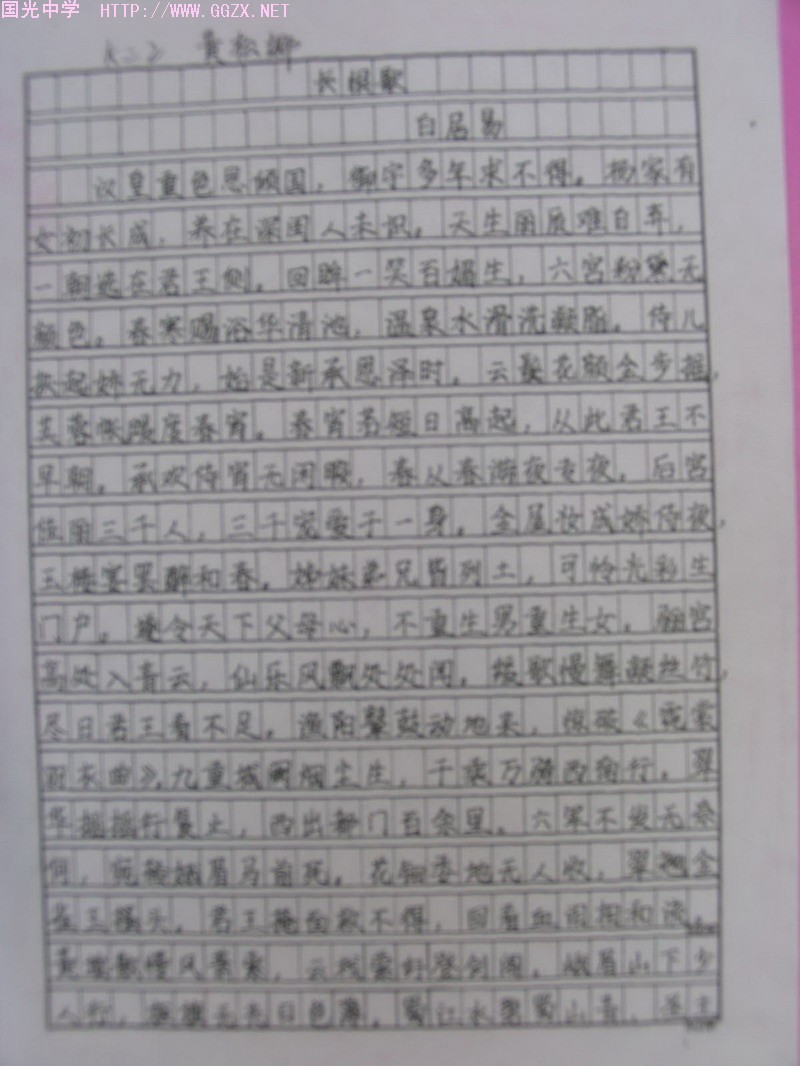 国光中学 HTTP://WWW.GGZX.NET
长恨歌
白居易
汉皇重色思倾国，御宇多年求不得。杨家有
女初长成，养在深闺人未识。天生丽质难自弃，
一朝选在君王侧。回眸一笑百媚生，六宫粉黛无
颜色。春寒赐浴华清池，温泉水滑洗凝脂。侍儿
扶起娇无力，始是新承恩泽时。云鬓花颜金步摇，
芙蓉帐暖度春宵。春宵苦短日高起，从此君王不
早朝。承欢侍宵无闲暇，春从春游夜专夜。后宫
佳丽三千人，三千宠爱于一身。金屋妆成娇侍夜，
玉楼宴罢醉和春。姊妹弟兄皆列土，可怜光彩生
门户。遂令天下父母心，不重生男重生女。骊宫
高处入青云，仙乐风飘处处闻。缓歌慢舞凝丝竹，
尽日君王看不足。渔阳鼙鼓动地来，惊破《霓裳
羽衣曲》，九重城阙烟尘生，千乘万骑西南行。翠
华摇摇行复止，西出都门百余里。六军不发无奈
何，宛转娥眉马前死。花钿委地无人收，翠翘金
雀玉搔头。君王掩面救不得，回看血泪相和流。
黄埃散漫风萧索，云栈萦纡登剑阁。峨眉山下少
人行，旌旗无光日色薄。蜀江水碧蜀山青，圣主